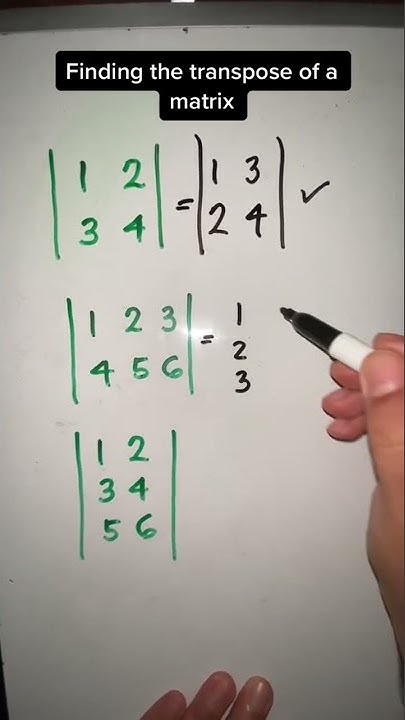 Finding the transpose of a
matrix
| 1 2 | = | 1 3 | ✓
| 3 4 | | 2 4 |
| 1 2 3 | = 1
| 4 5 6 | 2
3
| 1 2 |
| 3 4 |
| 5 6 |